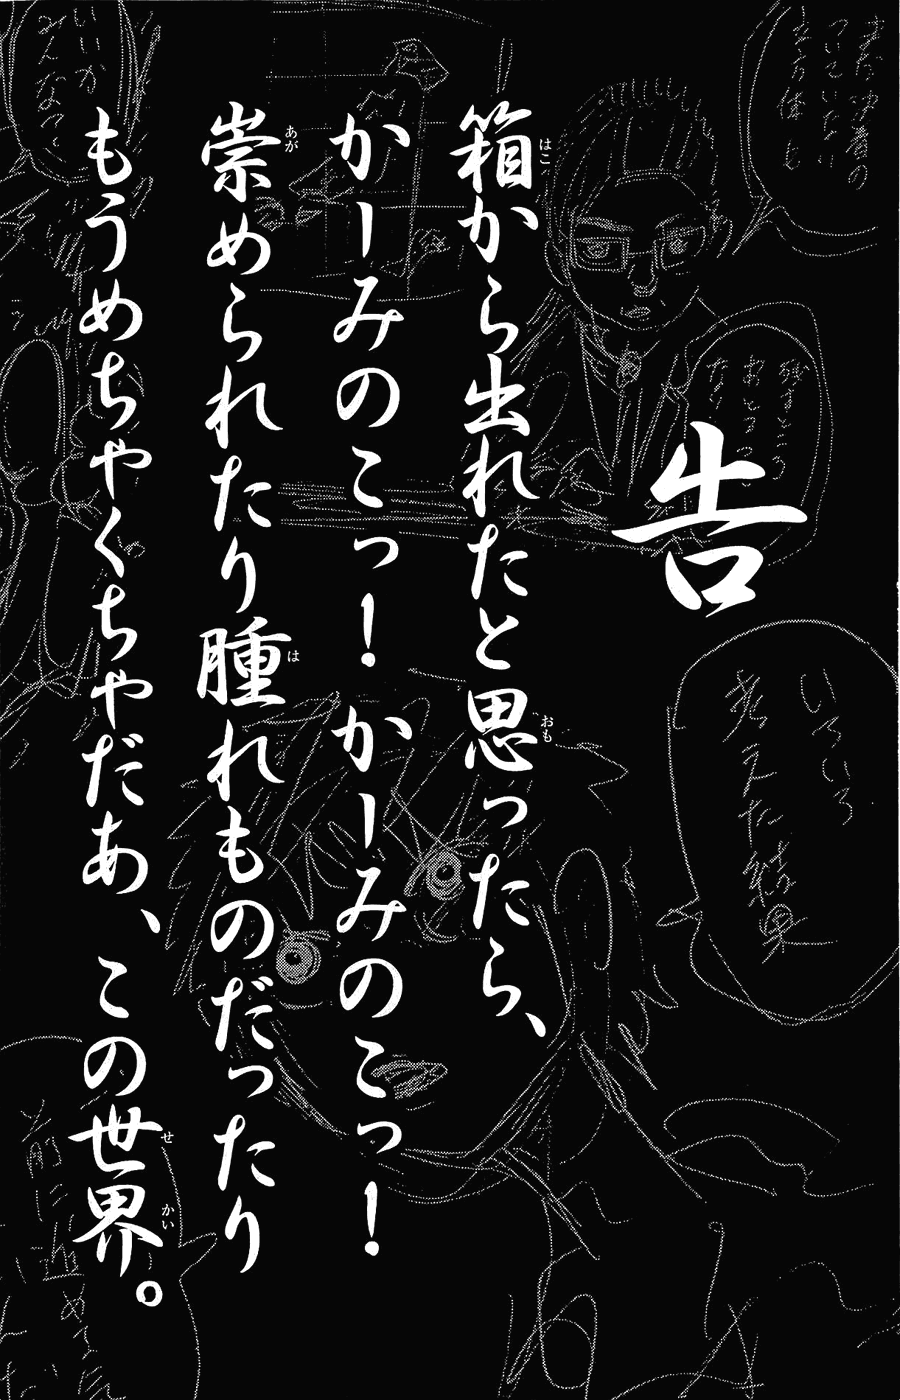 告
箱から出れたと思ったら、
かーみのこっ！かーみのこっ！
崇められたり腫れものだったり
もうめちゃくちゃだあ、この世界。
いろいろ
考えた結果